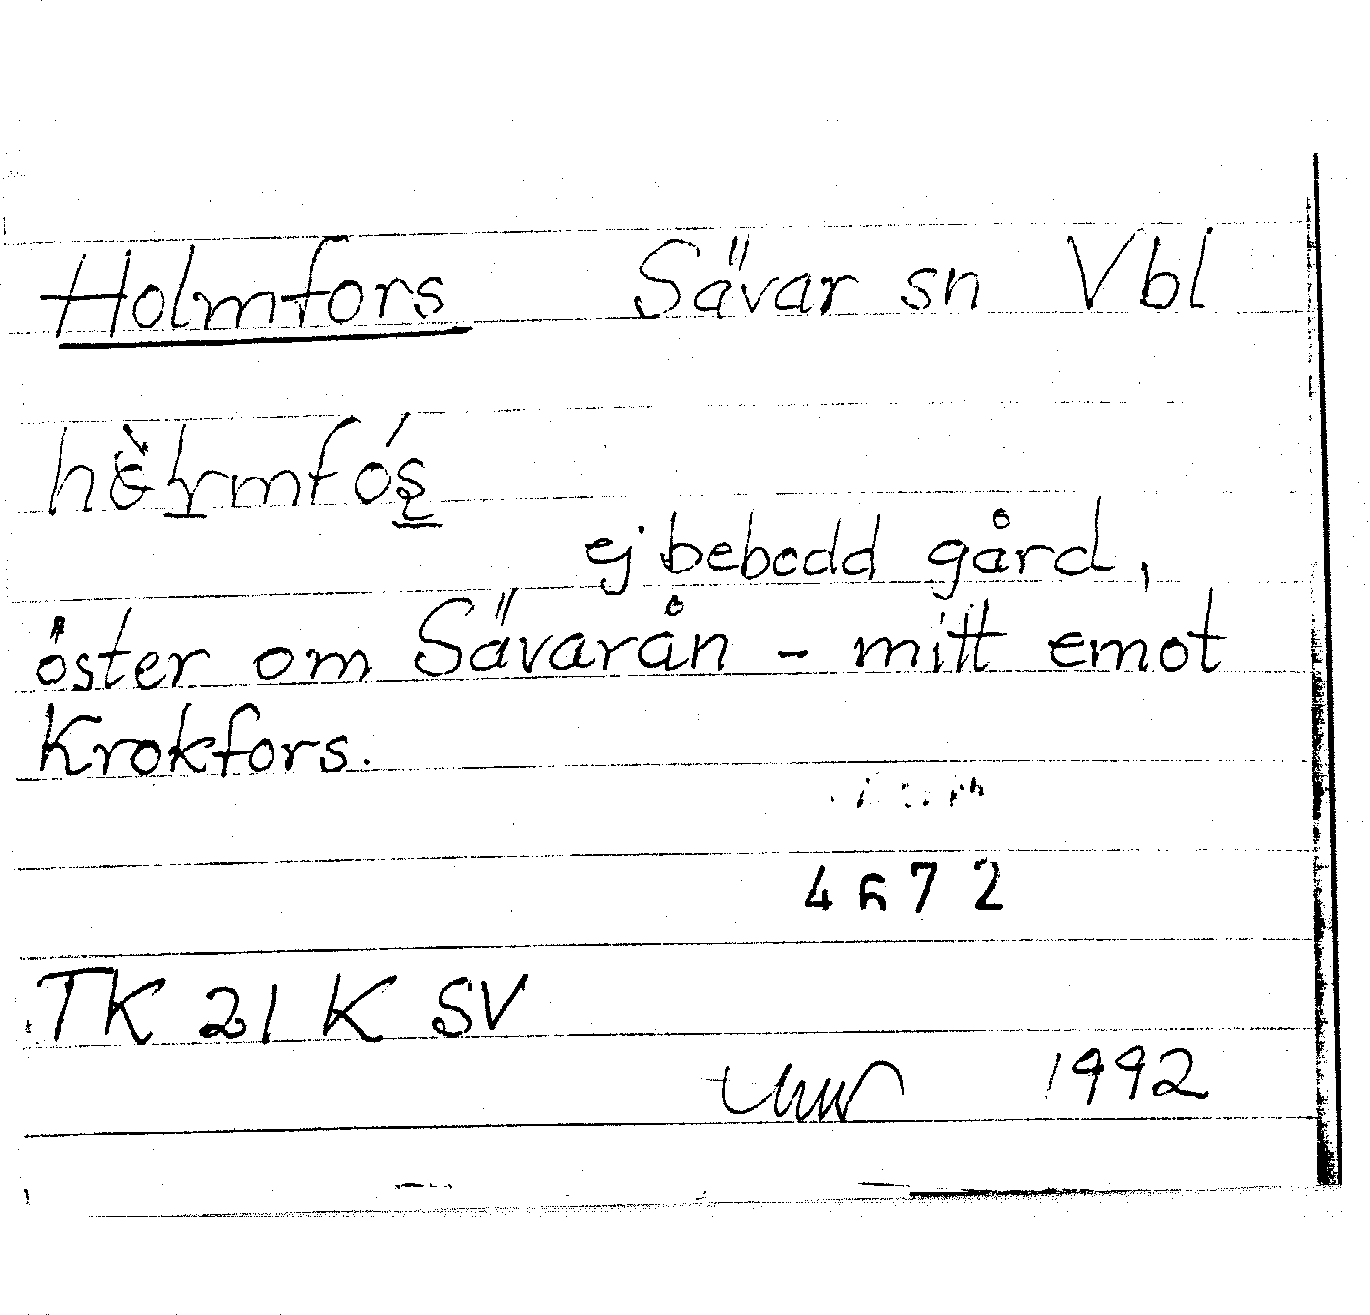 Holmfors Sävar sn Vbl
ej bebodd gård,
öster om Sävarån - mitt emot
Krokfors.
4672
TK 21 K SV
1992